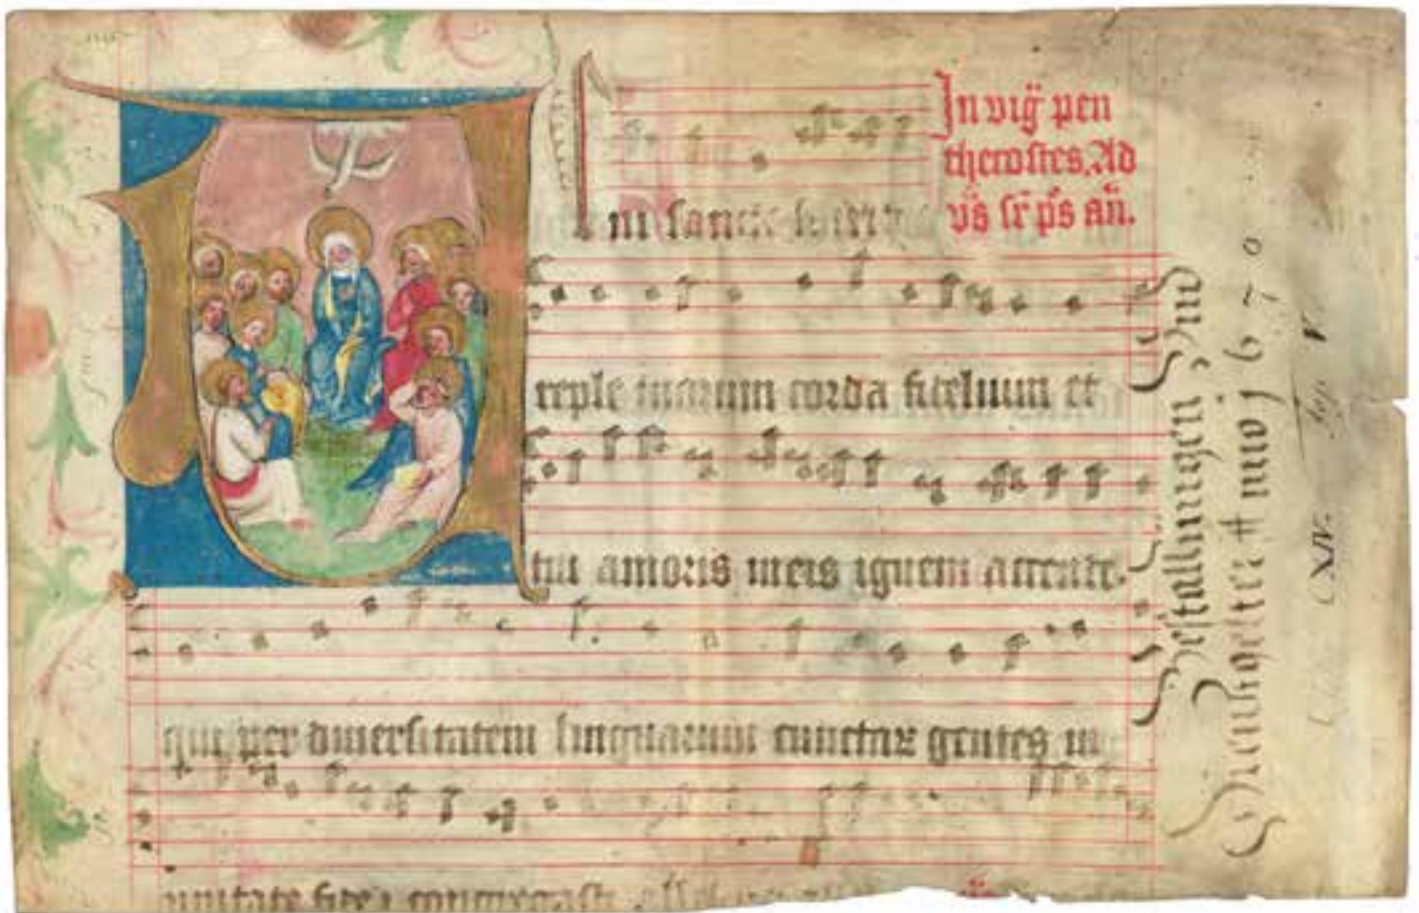 In vig̈ pen
thecostes. Ad
v̄s sr̄ p̄s an̄.
ni sancte
reple tuorum corda fidelium et
tui amoris in eis ignem accende.
qui per diuersitatem linguarum cunctar gentes in
unitate fidei congregasti
Bestallungen Und
Dienstgelter Anno 1670
XIV.
V